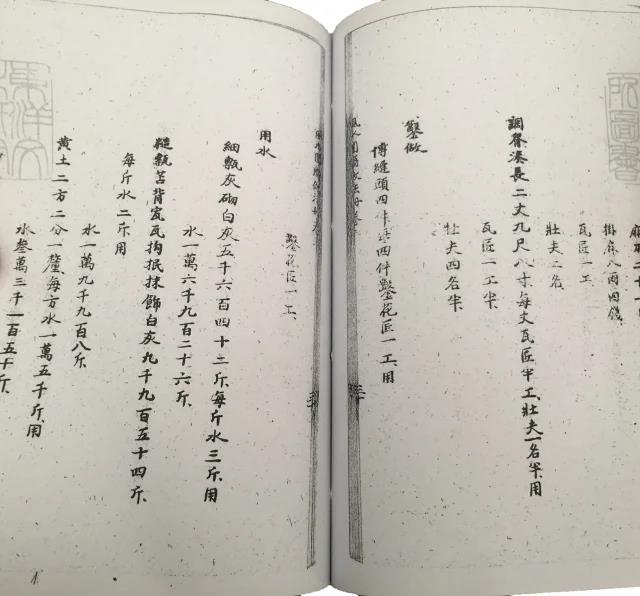 掛麻八兩四錢
瓦匠一工
壯夫二名
調脊湊長二丈九尺八寸每丈瓦匠半工壯夫一名半用
瓦匠一工半
壯夫四名半
鑿做
博縫頭四件每四件鑿花匠一工用
三
鑿花匠一工
用水
細瓶灰砌白灰五千六百四十二斤每斤水三斤用
水一萬六千九百二十六斤
糙瓶苫背宽瓦抅抿抹飾白灰九千九百五十四斤
每斤水二斤用
水一萬九千九百八斤
黄土二方二分一釐每方水一萬五千斤用
水叁萬三千一百五十斤